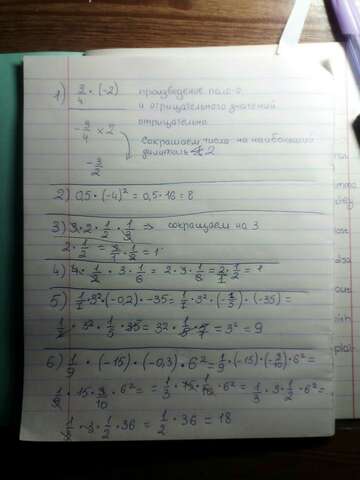 1) 3/4 · (-2) произведение полож-о
и отрицательного значений
отрицательно
- 3/4 × 2
Сокращаем числа на наибольший
делитель 2
- 3/2
2) 0,5 · (-4)² = 0,5 · 16 = 8
3) 3 · 2 · 1/2 · 1/3 ⇒ сокращаем на 3
2 · 1/2 = 2/1 · 1/2 = 1
4) 4 · 1/2 · 3 · 1/6 = 2 · 3 · 1/6 = 2/1 · 1/2 = 1
5) 1/7 · 3² · (-0,2) · -35 = 1/7 · 3² · (-1/5) · (-35) =
1/7 · 3² · 1/5 · 35 = 32 · 1/7 · 7 = 3² = 9
6) 1/9 · (-15) · (-0,3) · 6² = 1/9 · (-15) · (-3/10) · 6² =
1/9 · 15 · 3/10 · 6² = = 1/3 · 15 · 1/10 · 6² = 1/3 · 3 · 1/2 · 6² =
1/3 · 3 · 1/2 · 36 = 1/2 · 36 = 18